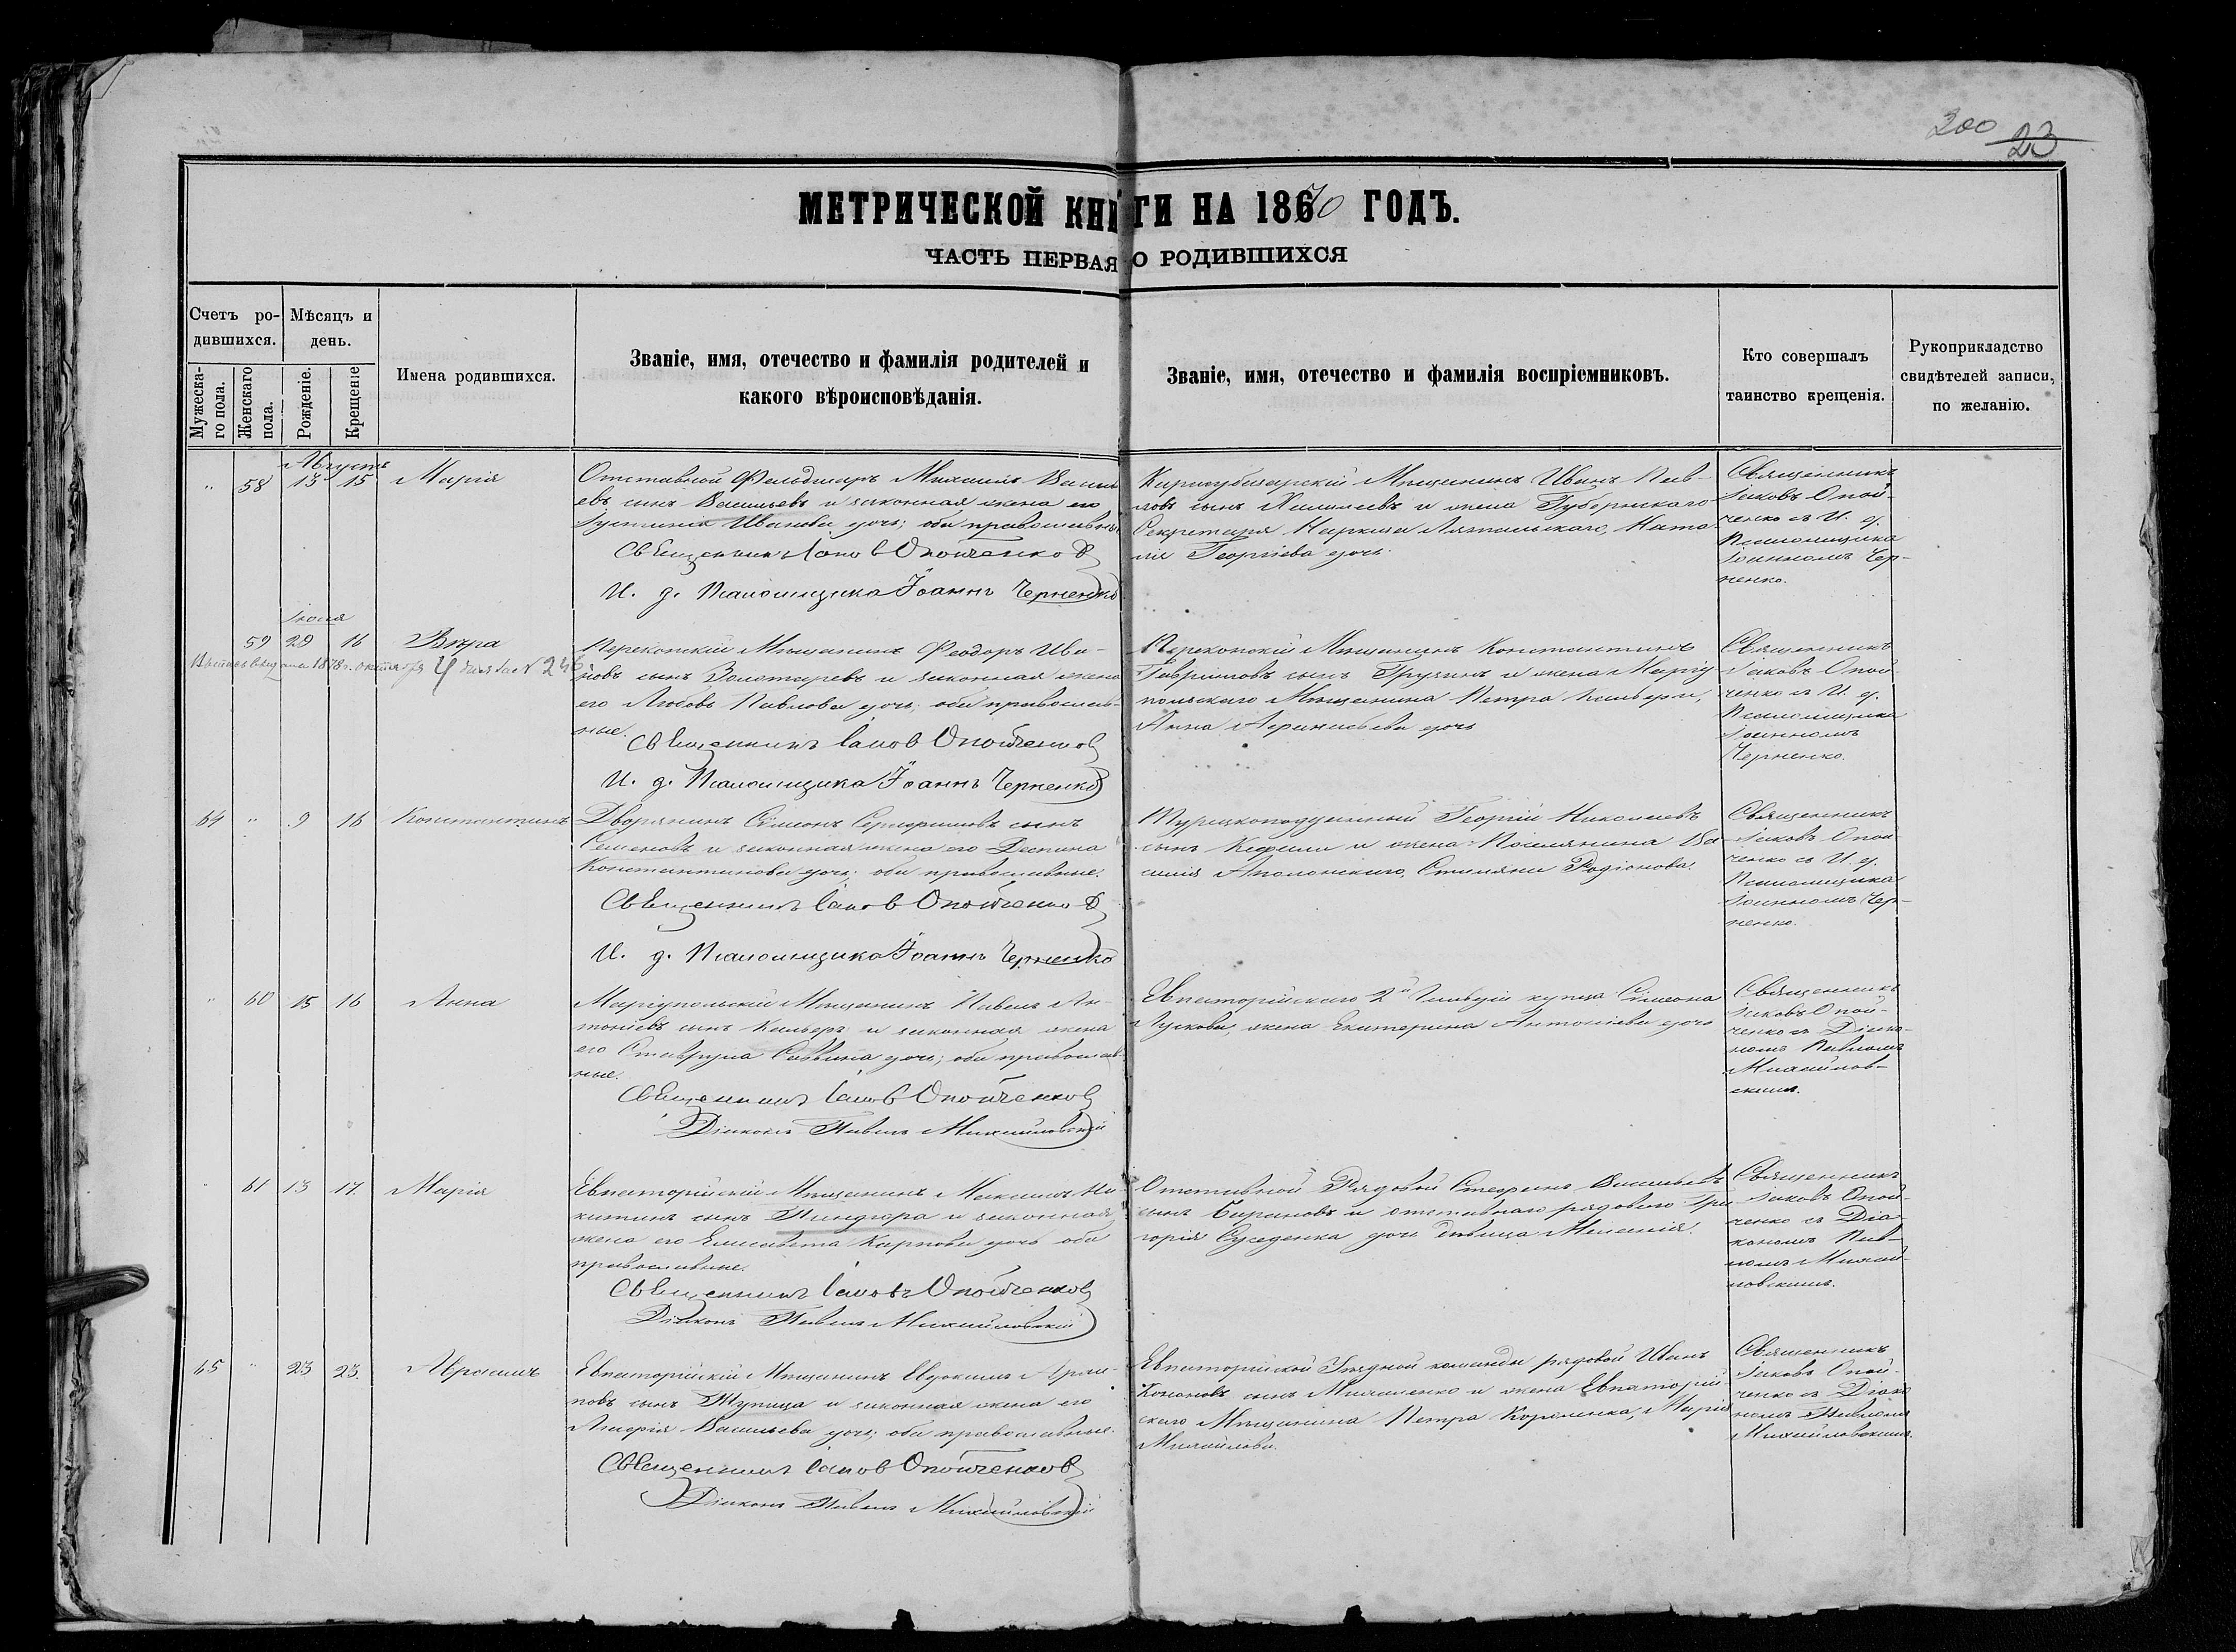 300
23
МЕТРИЧЕСКОЙ КНИГИ НА 1870 ГОДЪ.
ЧАСТЬ ПЕРВАЯ О РОДИВШИХСЯ
Счетъ ро-
дившихся.
Мужеска-
го пола.
Женскаго
пола.
Мѣсяцъ и
день.
Рожденіе.
Крещеніе
Имена родившихся.
Званіе, имя, отечество и фамилія родителей и
какого вѣроисповѣданія.
Званіе, имя, отечество и фамилія воспріемниковъ.
Кто совершалъ
таинство крещенія.
Рукоприкладство
свидѣтелей записи,
по желанію.
Августъ
" 58 13 15 Марія
Отставной Фельдшеръ Михаилъ Василь
евъ сынъ Васильевъ и законная жена его
Іустинія Иванова дочь; оба православные
Священникъ Іаковъ Опойченко
И. д. Псаломщика Іоаннъ Черненко
Карасубазарскій Мѣщанинъ Иванъ Пав-
ловъ сынъ и жена Губернскаго
Секретаря Ната-
лія Георгіева дочь.
Священникъ
Іаковъ Опой-
ченко съ И. д.
Псаломщика
Іоанномъ Чер-
ненко.
Іюля
59 29 16 Вѣра
1878 г. октября 4 дня за № 246
Перекопскій Мѣщанинъ Феодоръ Ива-
новъ сынъ Золотаревъ и законная жена
его Любовь Павлова дочь; оба православ-
ные.
Священникъ Іаковъ Опойченко
И. д. Псаломщика Іоаннъ Черненко
Перекопскій Мѣщанинъ Константинъ
Гавріиловъ сынъ Грузинъ и жена Маріу
польскаго Мѣщанина Петра Кальвери,
Анна Аѳанасьева дочь
Священникъ
Іаковъ Опой
ченко съ И. д.
Псаломщика
Іоанномъ
Черненко.
64 " 9 16 Константинъ
Дворянинъ Сѵмеонъ Серафимовъ сынъ
Семеновъ и законная жена его Деспина
Константинова дочь; оба православные.
Священникъ Іаковъ Опойченко
И. д. Псаломщика Іоаннъ Черненко
Турецкоподданный Георгій Николаевъ
сынъ и жена Поселянина Ва
силія Аполонскаго, Стиляни Родіонова.
Священникъ
Іаковъ Опой
ченко съ И. д.
Псаломщика
Іоанномъ Чер-
ненко.
" 60 15 16 Анна
Маріупольскій Мѣщанинъ Павелъ Ан-
тоніевъ сынъ Кальери и законная жена
его Ставрула Саввина дочь; оба православ-
ные.
Священникъ Іаковъ Опойченко
Діаконъ Павелъ Михайловскій
Евпаторійскаго 2й Гильдіи купца Сѵмеона
Лускова, жена Екатерина Антоніева дочь
Священникъ
Іаковъ Опой-
ченко съ Діако-
номъ Павломъ
Михайлов-
скимъ.
61 13 17. Марія
Евпаторійскій Мѣщанинъ Максимъ Ни
китинъ сынъ и законная
жена его Елисавета Карпова дочь оба
православные.
Священникъ Іаковъ Опойченко
Діаконъ Павелъ Михайловскій
Отставной Рядовой Стефанъ Васильевъ
сынъ Барановъ и отставнаго рядоваго Гри
горія Суседенка дочь дѣвица Меланія.
Священникъ
Іаковъ Опой-
ченко съ Діа-
кономъ Пав-
ломъ Михай-
ловскимъ.
65 " 23 23.
Евпаторійскій Мѣщанинъ Евдокимъ
повъ сынъ и законная жена его
Васильева дочь; оба православные.
Священникъ Іаковъ Опойченко
Діаконъ Павелъ Михайловскій
Евпаторійской Уѣздной команды рядовой Иванъ
Кононовъ сынъ Михаленко и жена Евпаторій-
скаго Мѣщанина Петра Короленка, Марія
Михайлова.
Священникъ
Іаковъ Опой-
ченко съ Діако
номъ Павломъ
Михайловскимъ.